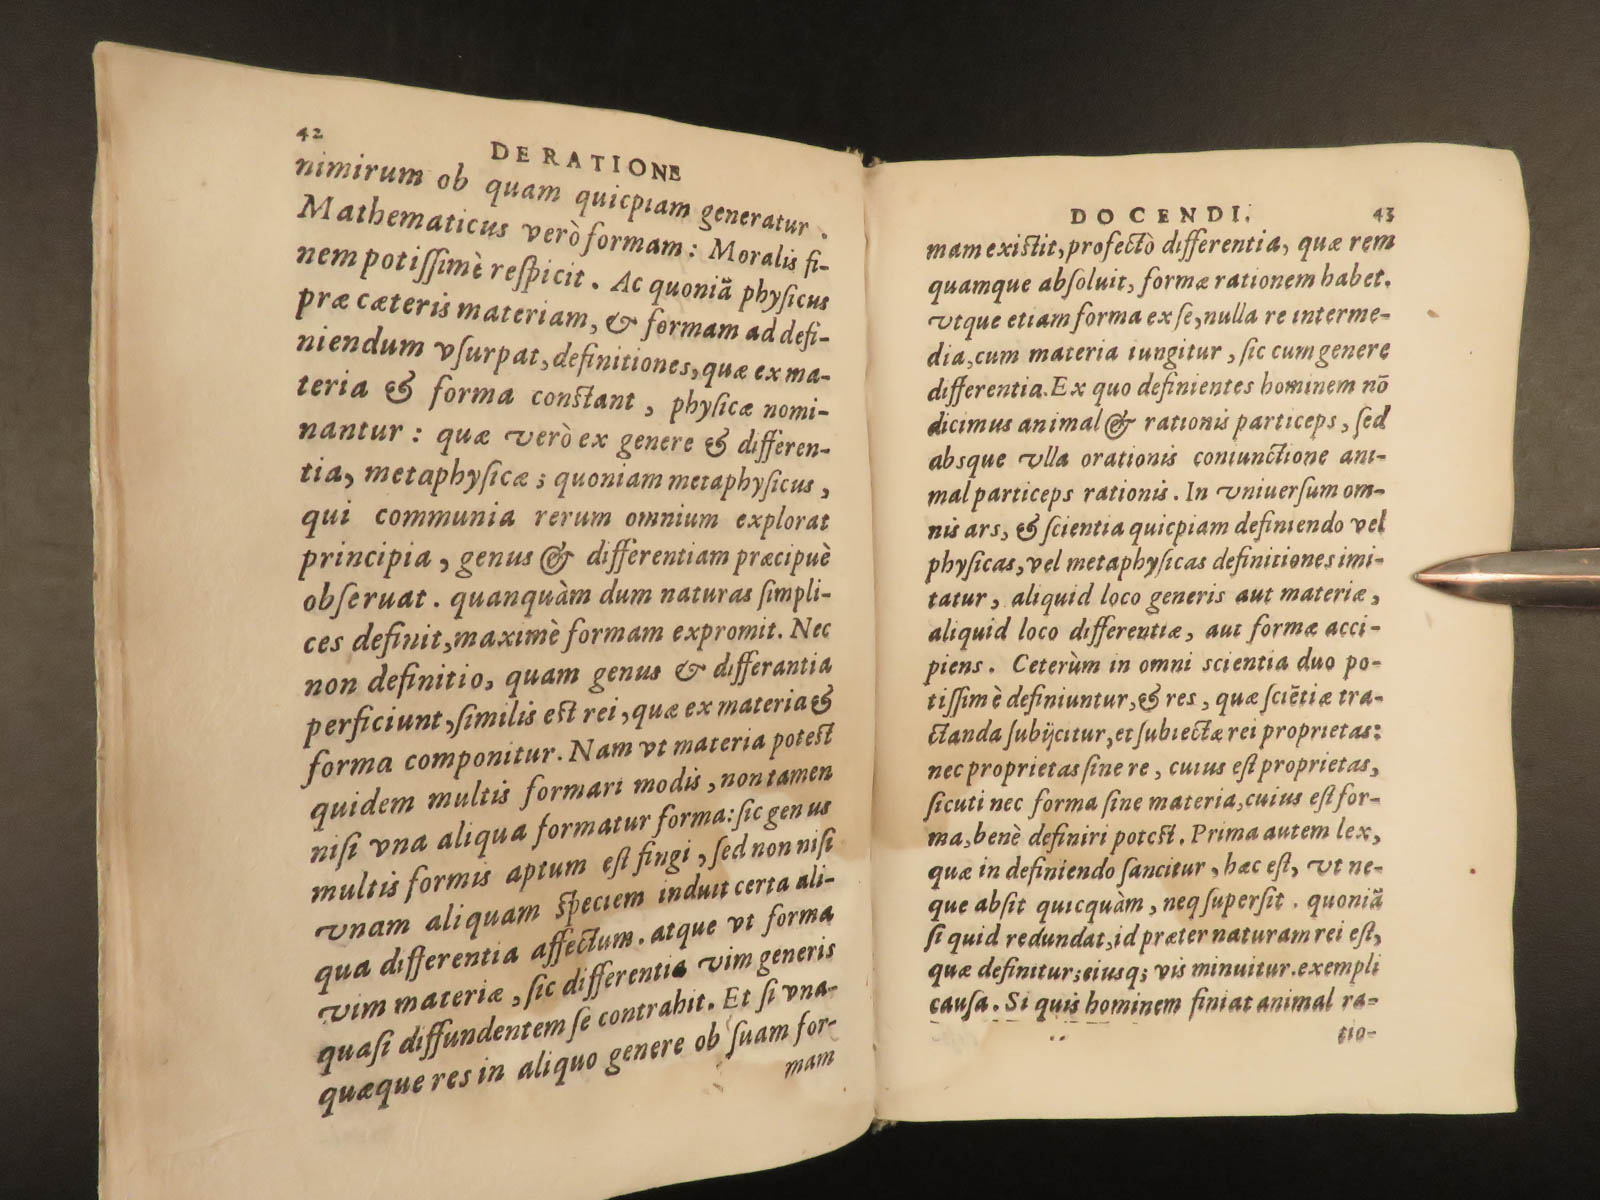 42
DE RATIONE
nimirum ob quam quicpiam generatur.
Mathematicus verò formam: Moralis fi-
nem potiſſimè reſpicit. Ac quoniã phyſicus
præ cæteris materiam, & formam ad defi-
niendum vſurpat, definitiones, quæ ex ma-
teria & forma conſtant, phyſicæ nomi-
nantur: quæ verò ex genere & differen-
tia, metaphyſicæ; quoniam metaphyſicus,
qui communia rerum omnium explorat
principia, genus & differentiam præcipuè
obſeruat. quanquàm dum naturas ſimpli-
ces definit, maximè formam expromit. Nec
non definitio, quam genus & differantia
perficiunt, ſimilis eſt rei, quæ ex materia &
forma componitur. Nam vt materia poteſt
quidem multis formari modis, non tamen
niſi vna aliqua formatur forma: ſic genus
multis formis aptum eſt fingi, ſed non niſi
vnam aliquam ſpeciem induit certa ali-
qua differentia affectum. atque vt forma
vim materiæ, ſic differentia vim generis
quaſi diffundentem ſe contrahit. Et ſi vna-
quæque res in aliquo genere ob ſuam for-
mam
DOCENDI. 43
mam exiſtit, profectò differentia, quæ rem
quamque abſoluit, formæ rationem habet.
Vtque etiam forma ex ſe, nulla re interme-
dia, cum materia iungitur, ſic cum genere
differentia. Ex quo definientes hominem nõ
dicimus animal & rationis particeps, ſed
absque vlla orationis coniunctione ani-
mal particeps rationis. In vniuerſum om-
nis ars, & ſcientia quicpiam definiendo vel
phyſicas, vel metaphyſicas definitiones imi-
tatur, aliquid loco generis aut materiæ,
aliquid loco differentiæ, aut formæ acci-
piens. Ceterùm in omni scientia duo po-
tiſſimè definiuntur, & res, quæ ſciẽtiæ tra-
ctanda ſubijcitur, et ſubiectæ rei proprietas:
nec proprietas ſine re, cuius eſt proprietas,
ſicuti nec forma ſine materia, cuius eſt for-
ma, benè definiri poteſt. Prima autem lex,
quæ in definiendo ſancitur, hæc eſt, vt ne-
que abſit quicquàm, neq; ſuperſit. quoniã
ſi quid redundat, id præter naturam rei eſt,
quæ definitur; eiusq; vis minuitur. exempli
cauſa. Si quis hominem finiat animal ra-
tio-